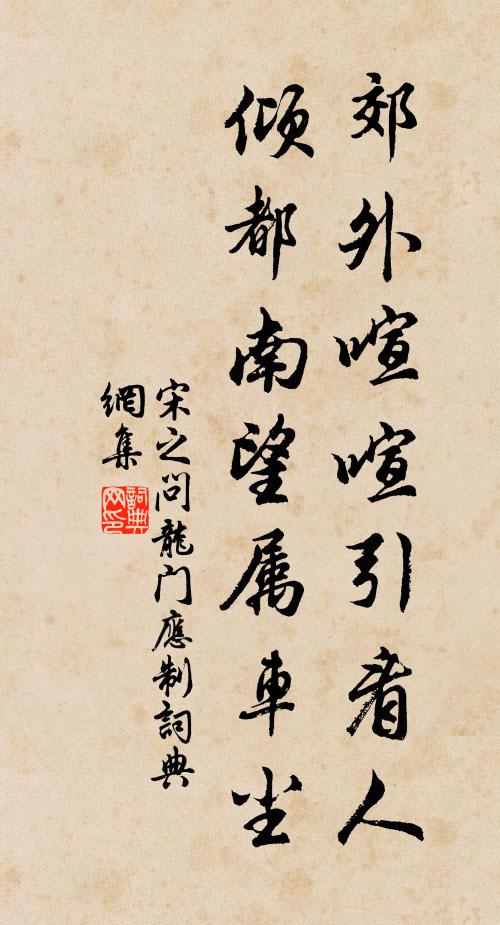 郊外喧喧引看人
傾都南望属車尘
宋之问龍门應制詞典
網集
詞典
网印